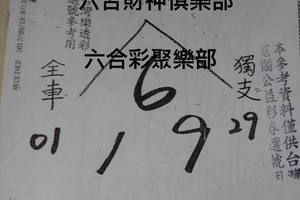 六合財神俱樂部
六合彩聚樂部
全車
6
獨支
01
1
9
29
本參考資料僅供台
電腦公益彩券選號用
灣樂透彩
選號參考用